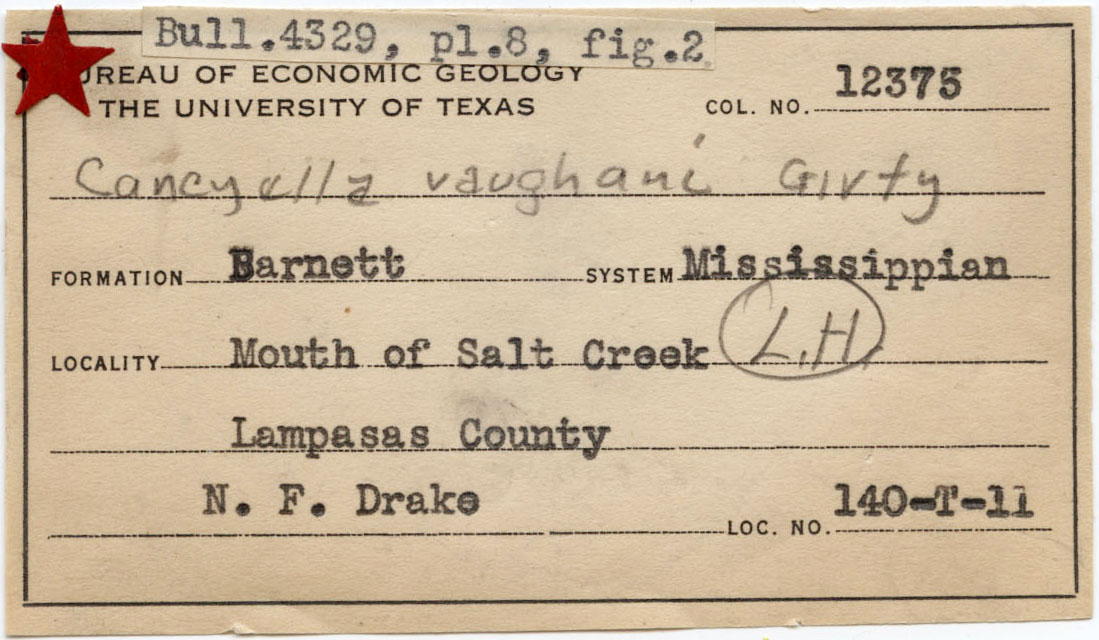 Bull.4329, pl.8, fig.2
BUREAU OF ECONOMIC GEOLOGY
THE UNIVERSITY OF TEXAS
COL. NO. 12375
Caneyella vaughani Girty
FORMATION Barnett SYSTEM Mississippian
LOCALITY Mouth of Salt Creek L.H.
Lampasas County
N. F. Drake LOC. NO. 140-T-11